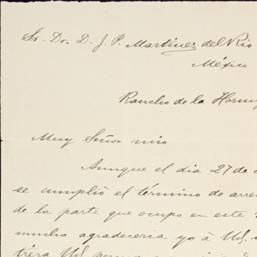 Sr. Dr. D. J. P. Martinez del Rio
México
Rancho de la Hormig
Muy Señor mio
Aunque el dia 27 de
se cumplió el término de arre
de la parte que ocupo en este
mucho agradeceria yo á Ud.